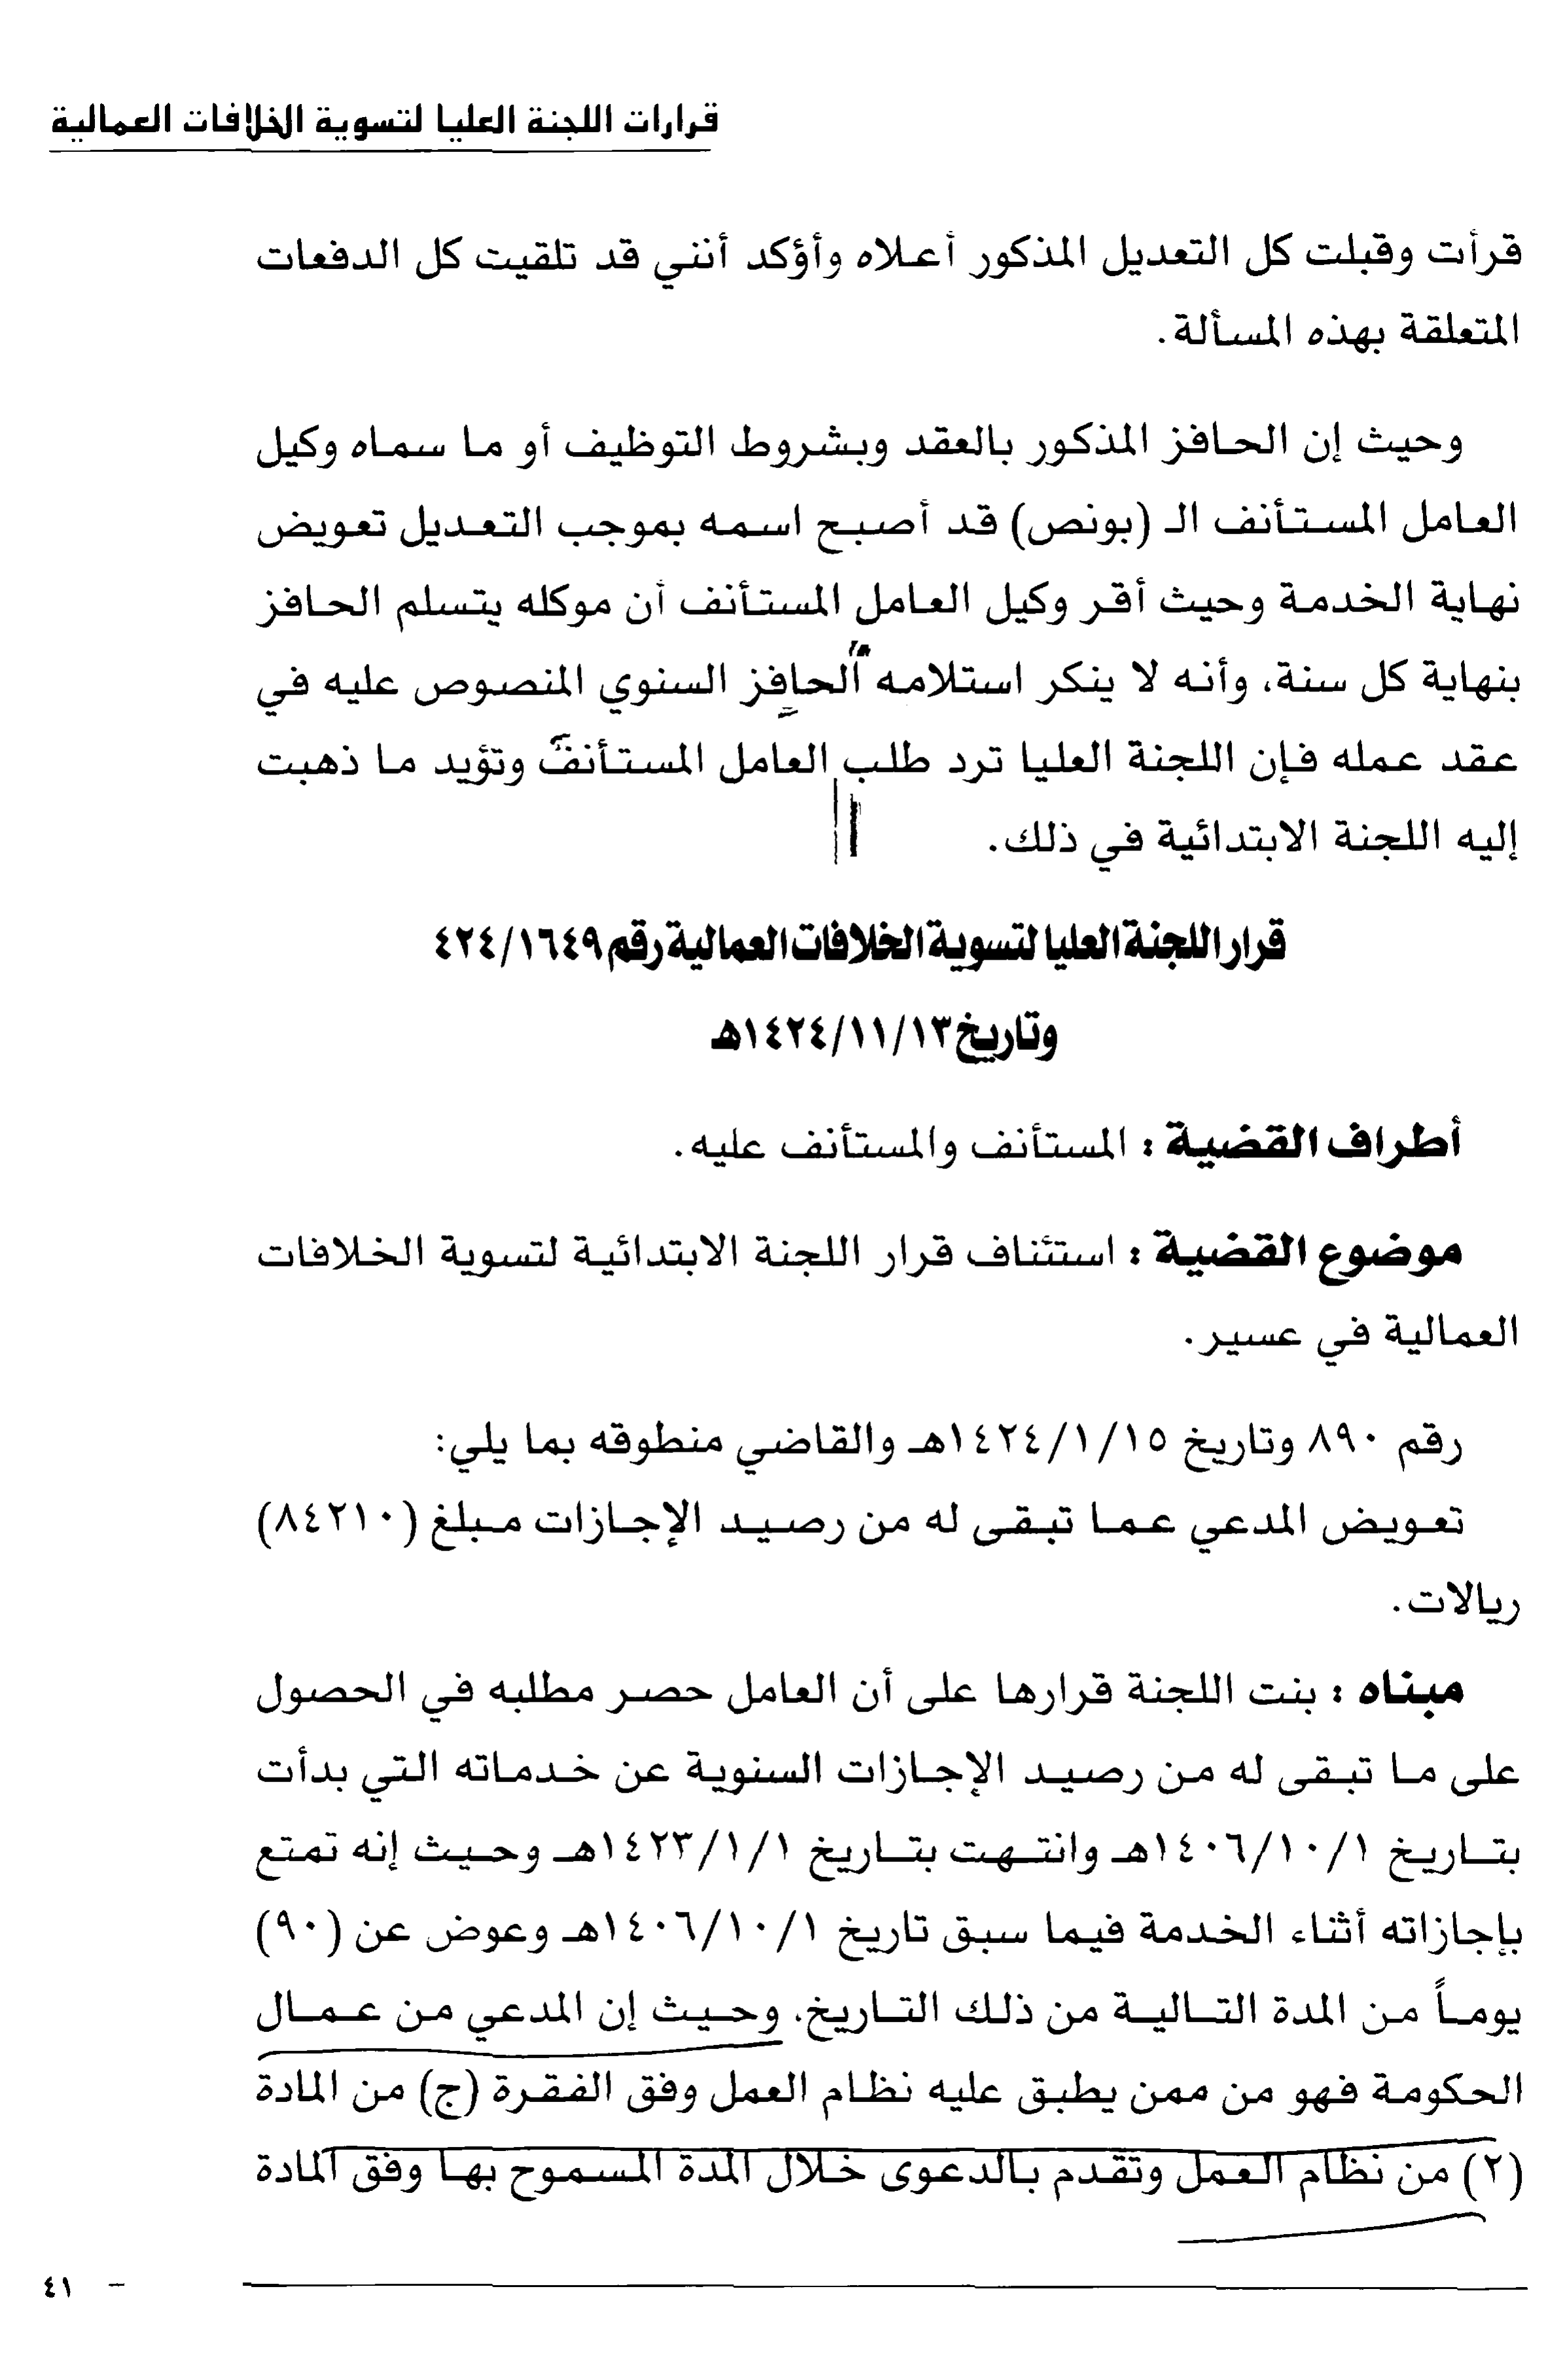 قرارات اللجنة العليا لتسوية الخلافات العمالية
قرأت وقبلت كل التعديل المذكور أعلاه وأؤكد أنني قد تلقيت كل الدفعات
المتعلقة بهذه المسألة.
وحيث إن الحافز المذكور بالعقد وبشروط التوظيف أو ما سماه وكيل
العامل المستأنف الـ (بونص) قد أصبح اسمه بموجب التعديل تعويض
نهاية الخدمة وحيث أقر وكيل العامل المستأنف أن موكله يتسلم الحافز
بنهاية كل سنة، وأنه لا ينكر استلامه الحافز السنوي المنصوص عليه في
عقد عمله فإن اللجنة العليا ترد طلب العامل المستأنف وتؤيد ما ذهبت
إليه اللجنة الابتدائية في ذلك.
قرار اللجنة العليا لتسوية الخلافات العمالية رقم ٤٢٤/١٦٤٩
وتاريخ ١٤٢٤/١١/١٣هـ
أطراف القضية : المستأنف والمستأنف عليه.
موضوع القضية : استئناف قرار اللجنة الابتدائية لتسوية الخلافات
العمالية في عسير.
رقم ٨٩٠ وتاريخ ١٤٢٤/١/١٥هـ والقاضي منطوقه بما يلي:
تعويض المدعي عما تبقى له من رصيد الإجازات مبلغ (٨٤٢١٠)
ريالات.
مبناه : بنت اللجنة قرارها على أن العامل حصر مطلبه في الحصول
على ما تبقى له من رصيد الإجازات السنوية عن خدماته التي بدأت
بتاريخ ١٤٠٦/١٠/١هـ وانتهت بتاريخ ١٤٢٣/١/١هـ وحيث إنه تمتع
بإجازاته أثناء الخدمة فيما سبق تاريخ ١٤٠٦/١٠/١هـ وعوض عن (٩٠)
يوماً من المدة التالية من ذلك التاريخ، وحيث إن المدعي من عمال
الحكومة فهو من ممن يطبق عليه نظام العمل وفق الفقرة (ج) من المادة
(٢) من نظام العمل وتقدم بالدعوى خلال المدة المسموح بها وفق المادة
٤١ –